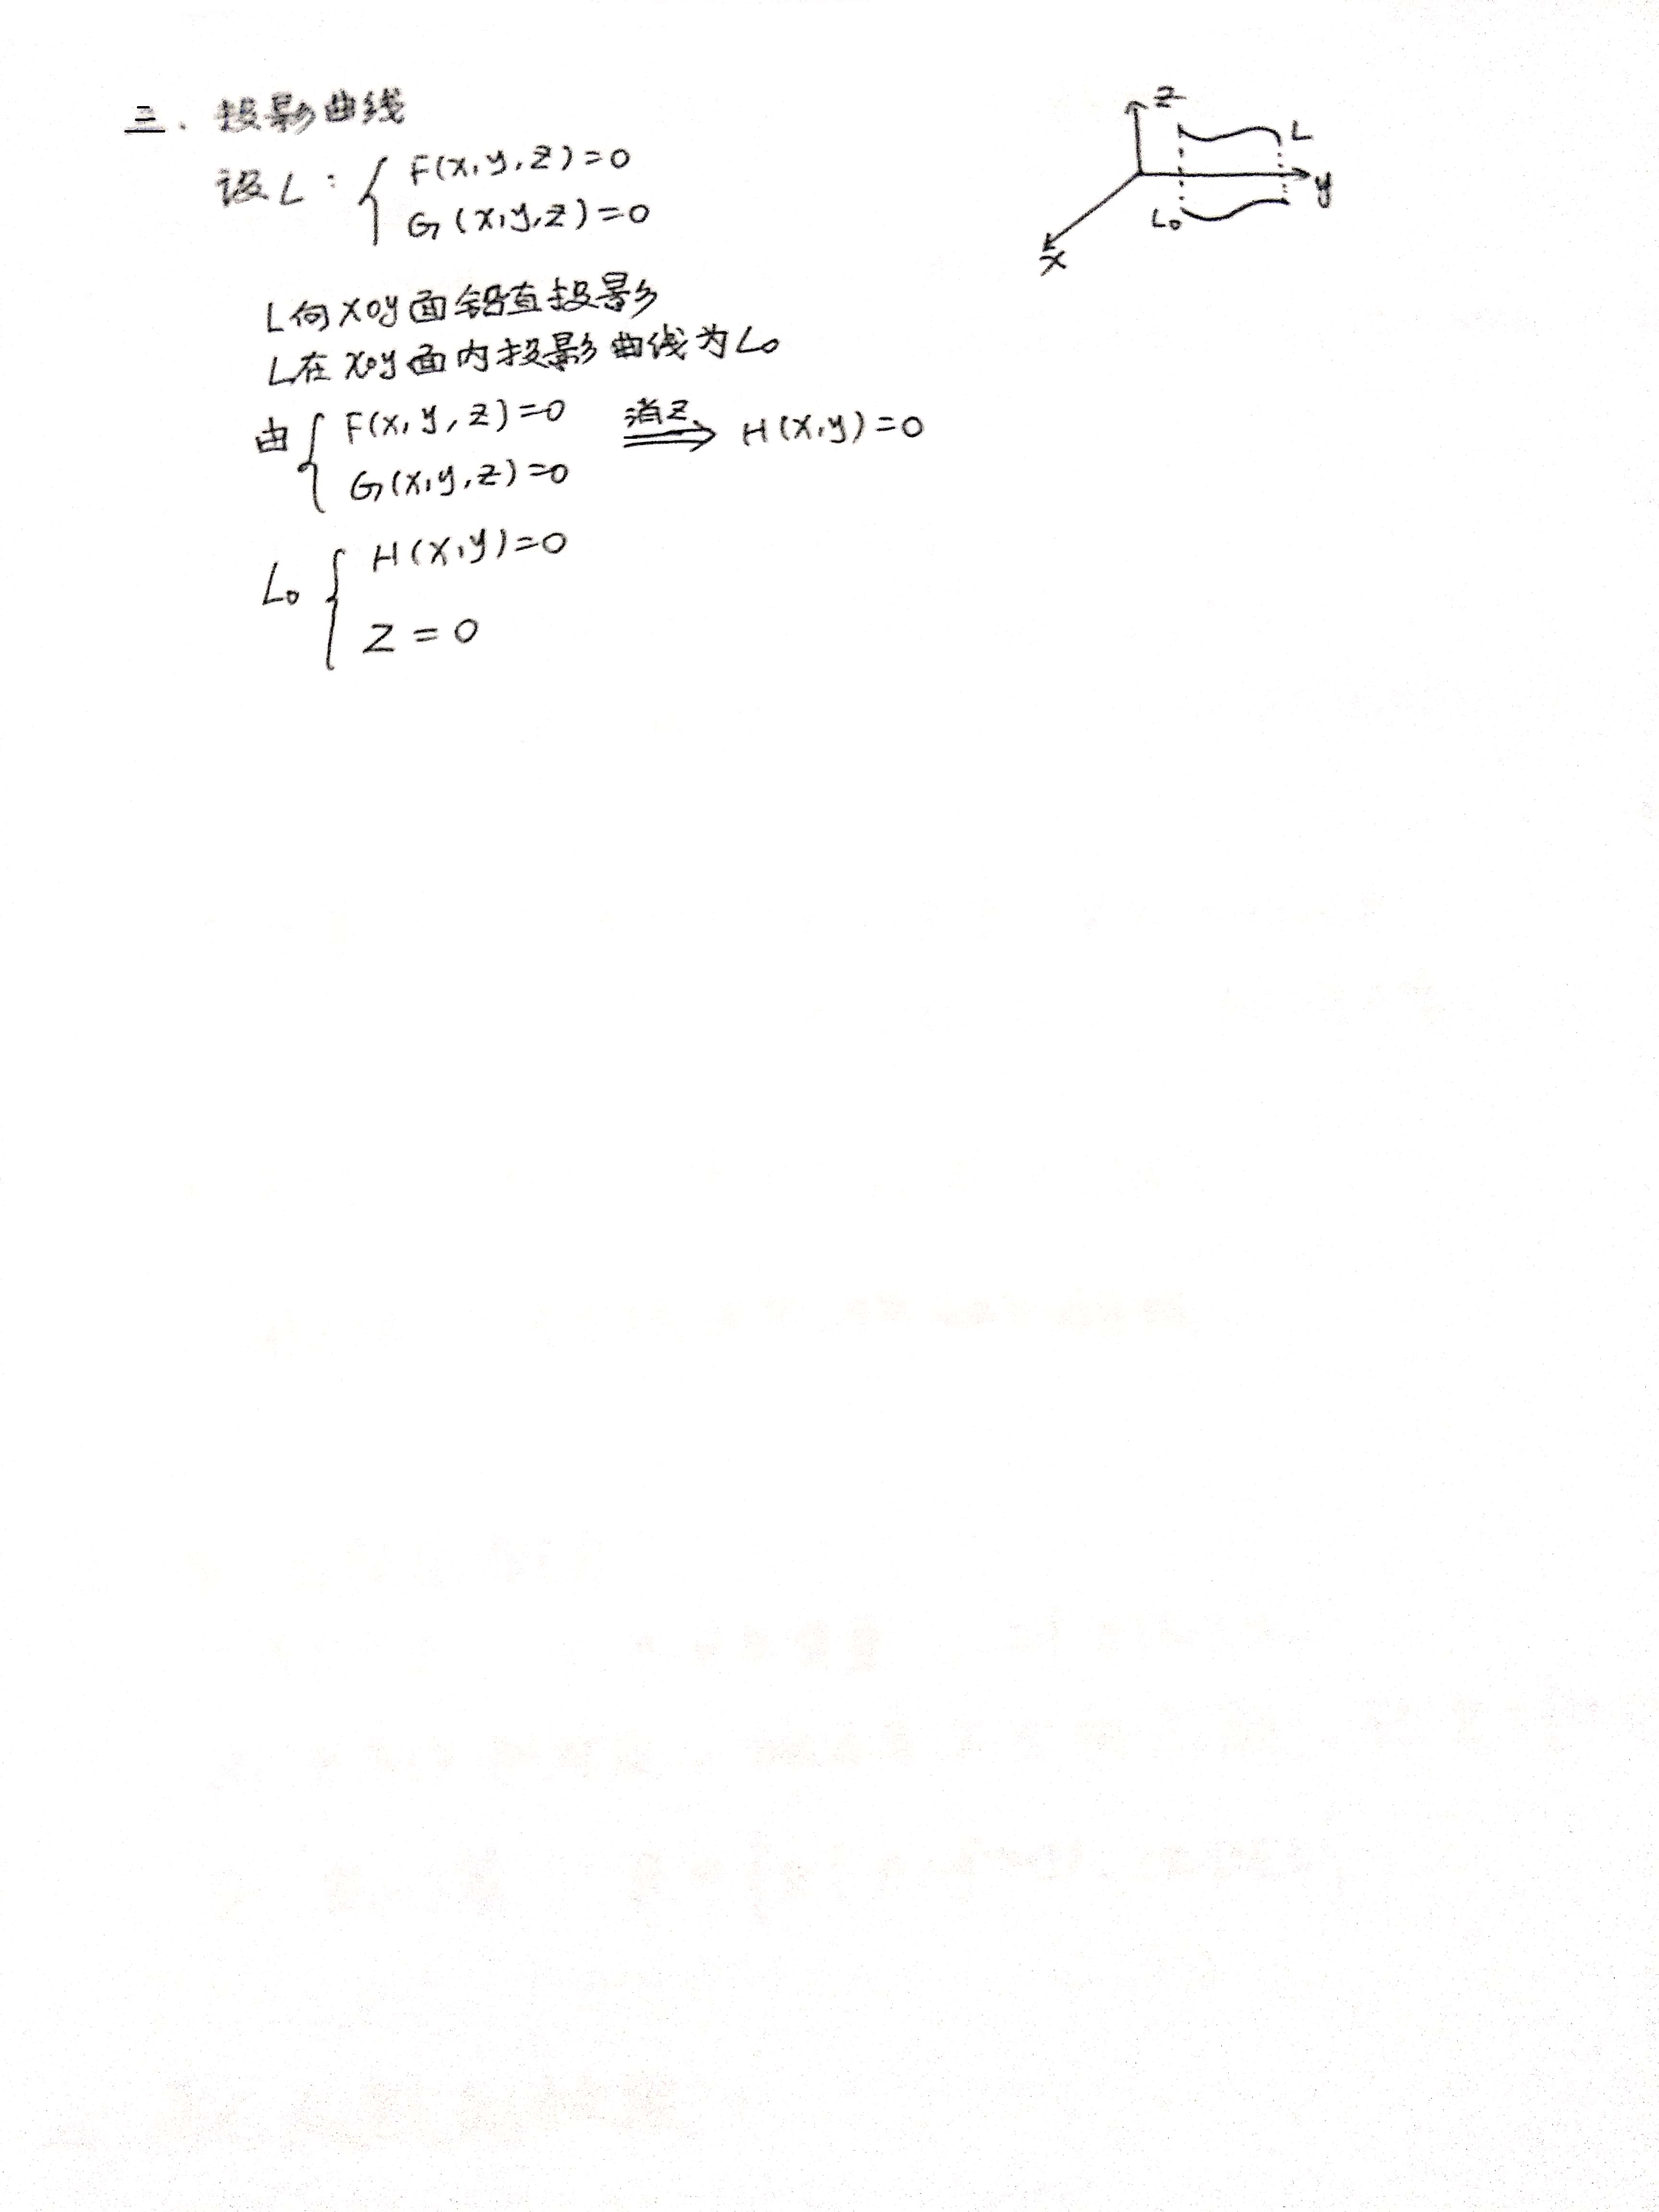 三. 投影曲线
设L: { F(x,y,z)=0
G(x,y,z)=0
L向xoy面铅直投影
L在xoy面内投影曲线为L₀
由 { F(x,y,z)=0
G(x,y,z)=0
消z ⇒ H(x,y)=0
L₀ { H(x,y)=0
z=0
z
L
y
L₀
x